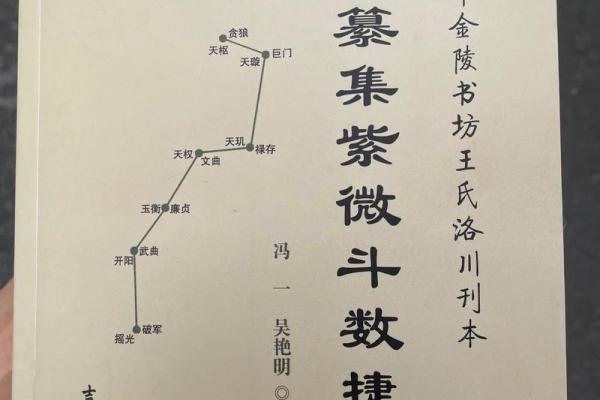 金陵书坊王氏洛川刊本
纂集紫微斗数捷
冯一 吴艳明◎
贪狼
天枢
巨门
天璇
天玑
禄存
天权
文曲
玉衡
廉贞
武曲
开阳
破军
摇光
吉